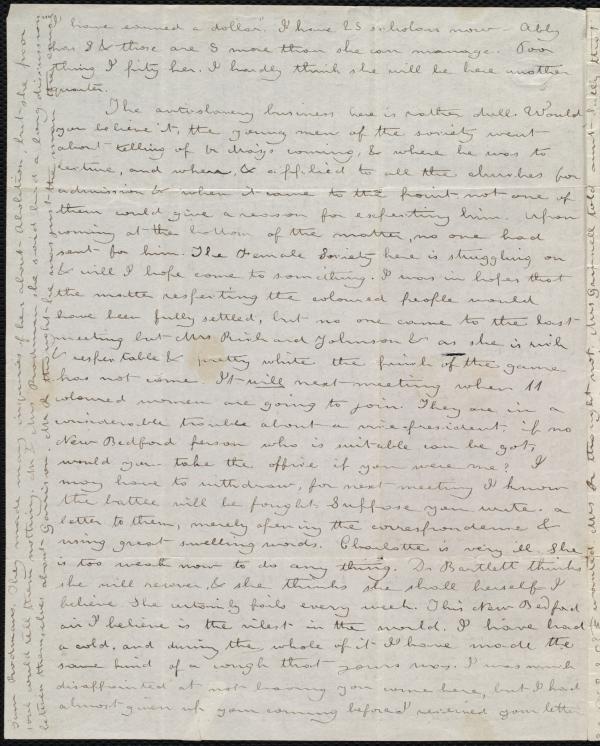 I have earned a dollar". I have 25 scholars now - Abby
has 8 & those are 5 more than she can manage. Poor
thing I pity her. I hardly think she will be here another
quarter.
The anti-slavery business here is rather dull. Would
you believe it, the young men of the society went
about telling of br May's coming, & where he was to
lecture, and when, & applied to all the churches for
admission & when it came to the point not one of
them could give a reason for expecting him. Upon
coming at the bottom of the matter, no one had
sent for him. The Female Society here is struggling on
& will I hope come to something. I was in hopes that
the matter respecting the coloured people would
have been fully settled, but no one came to the last
meeting but Mrs Richard Johnson & as she is rich
& respectable & pretty white the finish of the game
has not come. It will next meeting when 11
coloured women are going to join. They are in a
considerable trouble about a vice president, if no
New Bedford person who is suitable can be got,
would you take the office if you were me? I
may have to withdraw, for next meeting I know
the battle will be fought. Suppose you write a
letter to them, merely opening the correspondence &
using great swelling words. Charlotte is very ill. She
is too weak now to do any thing. Dr Bartlett thinks
she will recover, & she thinks she shall herself I
believe. She certainly fails every week. This New Bedford
air I believe is the vilest in the world. I have had
a cold, and during the whole of it I have made the
same kind of a cough that yours was. I was much
disappointed at not having you come here, but I had
almost given up your coming before I received your letter
They made many inquiries of her about Abolition but she poor
soul could tell them nothing. Mr & Mrs Rodman she said had a long discussion
between themselves about Garrison. Mr R thought he was just the man that should